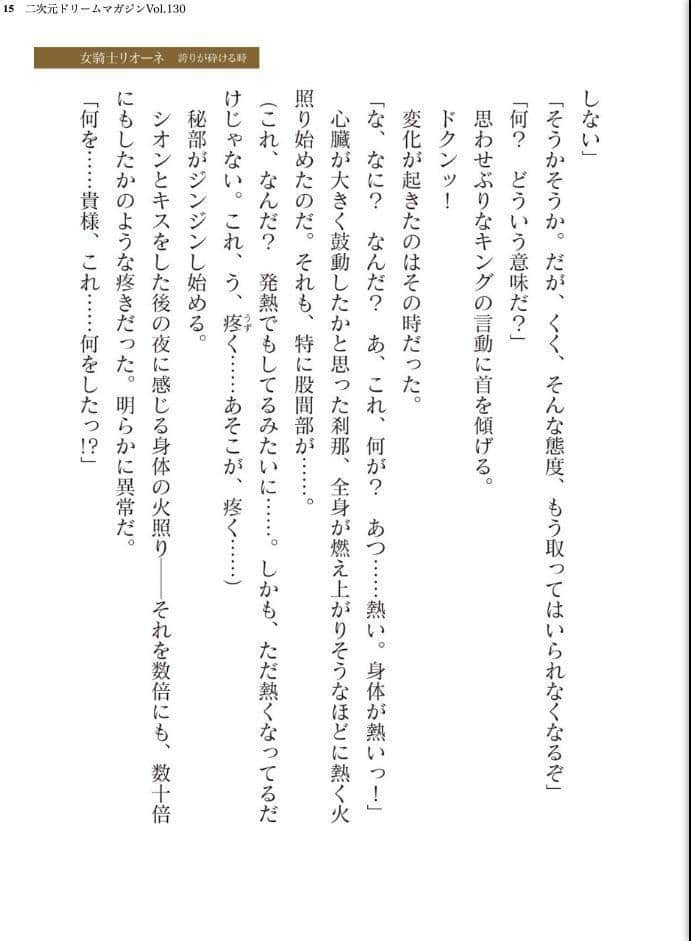 15 二次元ドリームマガジンVol.130
女騎士リオーネ 誇りが砕ける時
しない」
「そうかそうか。だが、くく、そんな態度、もう取ってはいられなくなるぞ」
「何？　どういう意味だ？」
思わせぶりなキングの言動に首を傾げる。
ドクンッ！
変化が起きたのはその時だった。
「な、なに？　なんだ？　あ、これ、何が？　あつ……熱い。身体が熱いっ！」
心臓が大きく鼓動したかと思った刹那、全身が燃え上がりそうなほどに熱く火
照り始めたのだ。それも、特に股間部が……。
（これ、なんだ？　発熱でもしてるみたいに……。しかも、ただ熱くなってるだ
けじゃない。これ、う、疼うずく……あそこが、疼く……）
秘部がジンジンし始める。
シオンとキスをした後の夜に感じる身体の火照り――それを数倍にも、数十倍
にもしたかのような疼きだった。明らかに異常だ。
「何を……貴様、これ……何をしたっ!?」